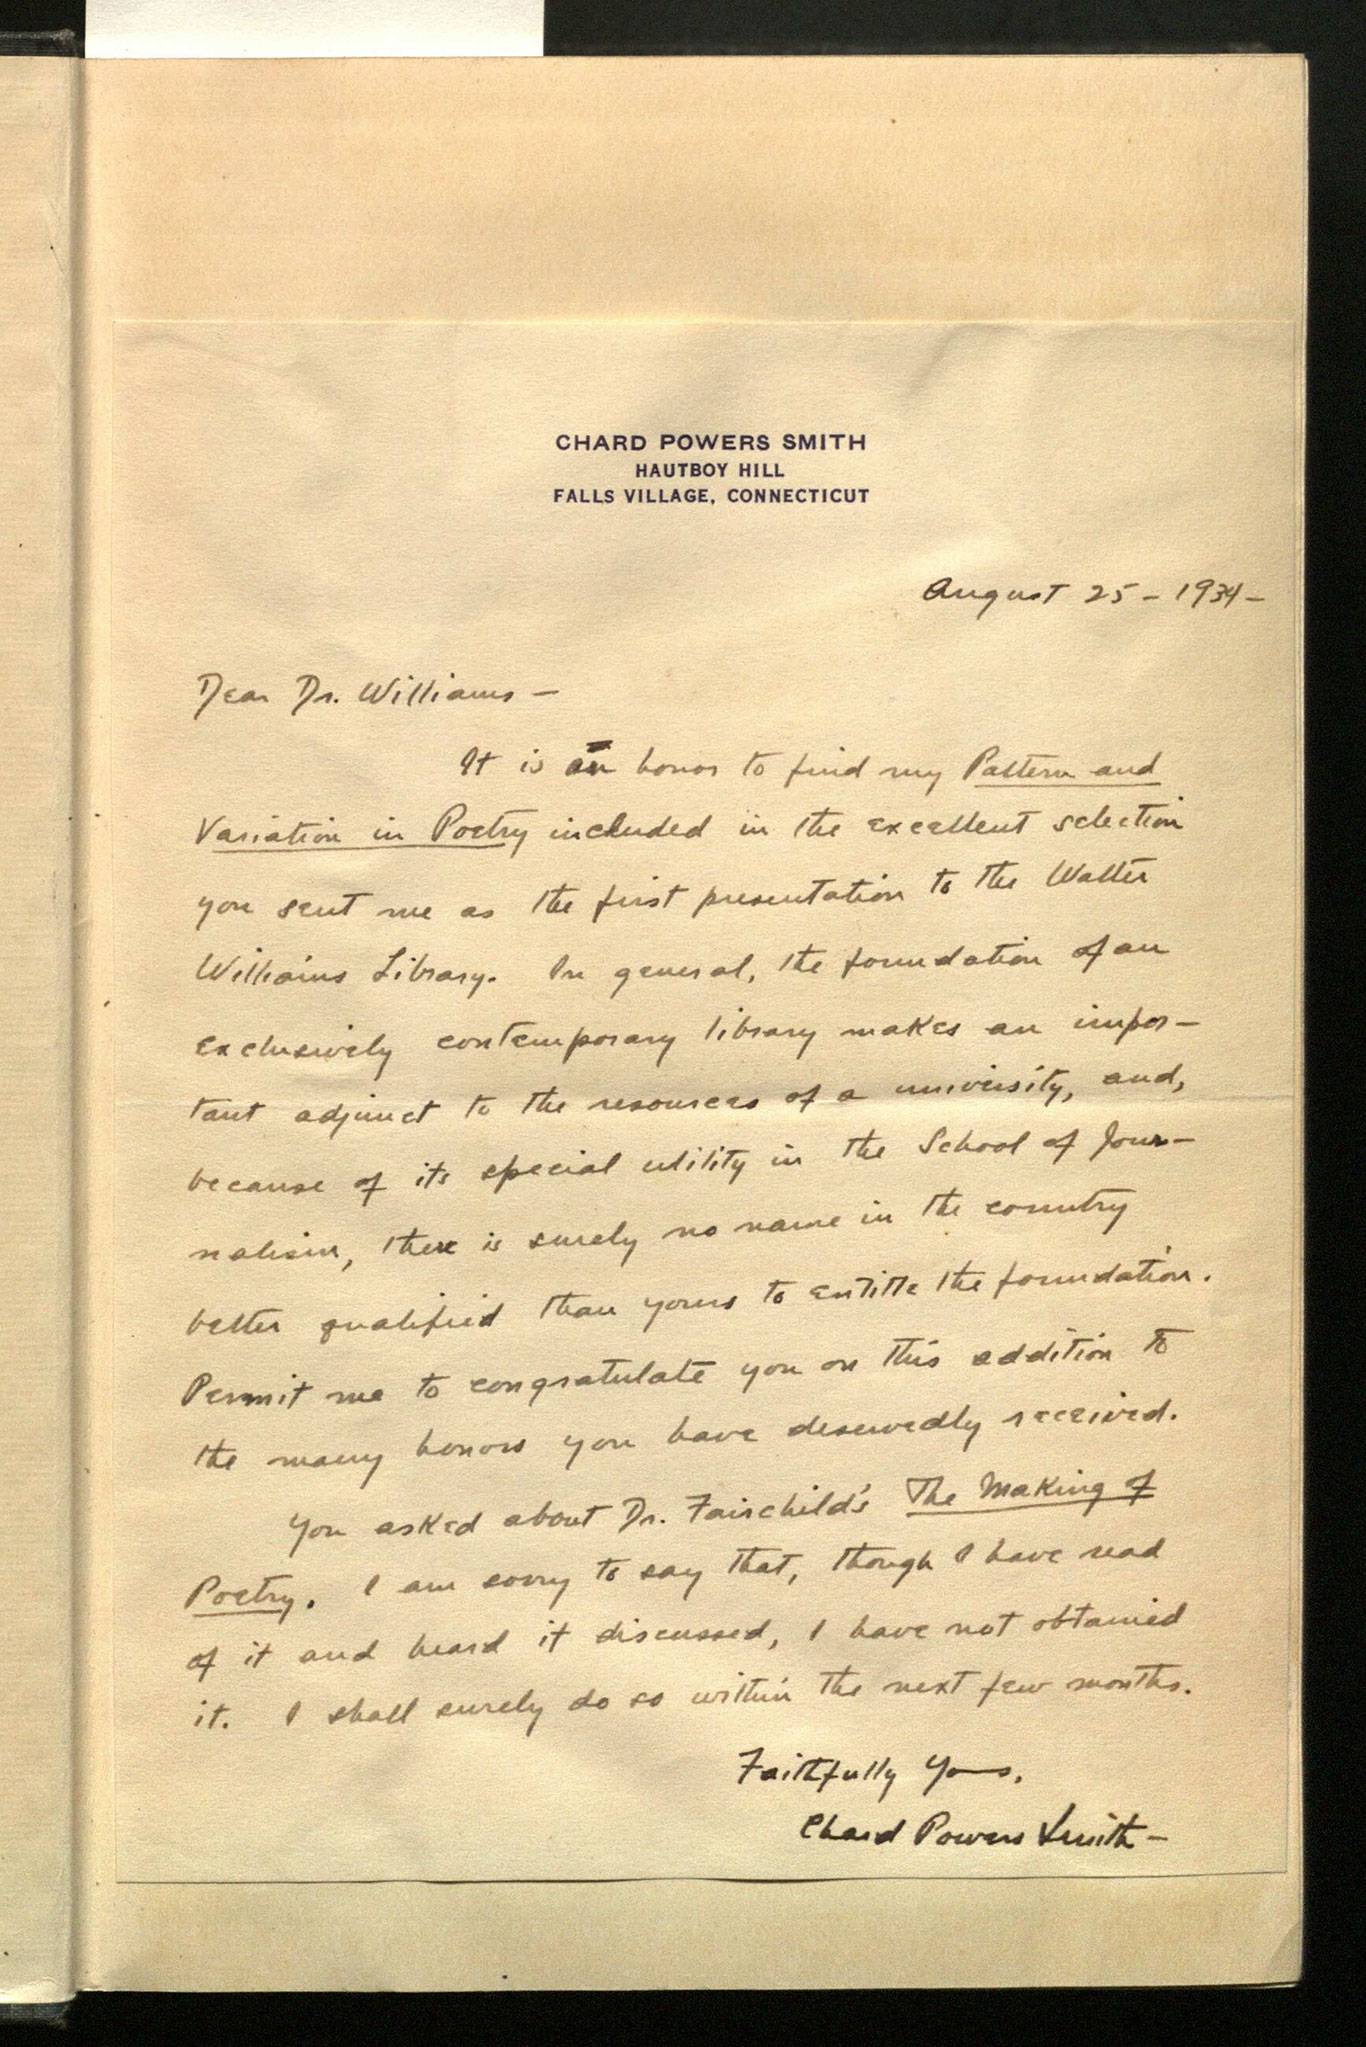 CHARD POWERS SMITH
HAUTBOY HILL
FALLS VILLAGE, CONNECTICUT
August 25 - 1934 -
Dear Dr. Williams -
It is an honor to find my Pattern and
Variation in Poetry included in the excellent selection
you sent me as the first presentation to the Walter
Williams Library. In general, the foundation of an
exclusively contemporary library makes an impor-
tant adjunct to the resources of a university, and,
because of its special utility in the School of Jour-
nalism, there is surely no name in the country
better qualified than yours to entitle the foundation.
Permit me to congratulate you on this addition to
the many honors you have deservedly received.
You asked about Dr. Fairchild's The Making of
Poetry. I am sorry to say that, though I have read
of it and heard it discussed, I have not obtained
it. I shall surely do so within the next few months.
Faithfully Yours,
Chard Powers Smith -